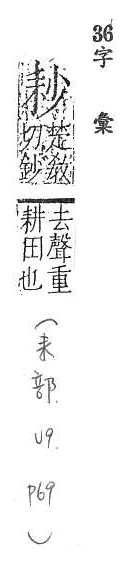 36字彙
耖
楚敎
切鈔
去聲重
耕田也
(耒部.
U9.
P69
)